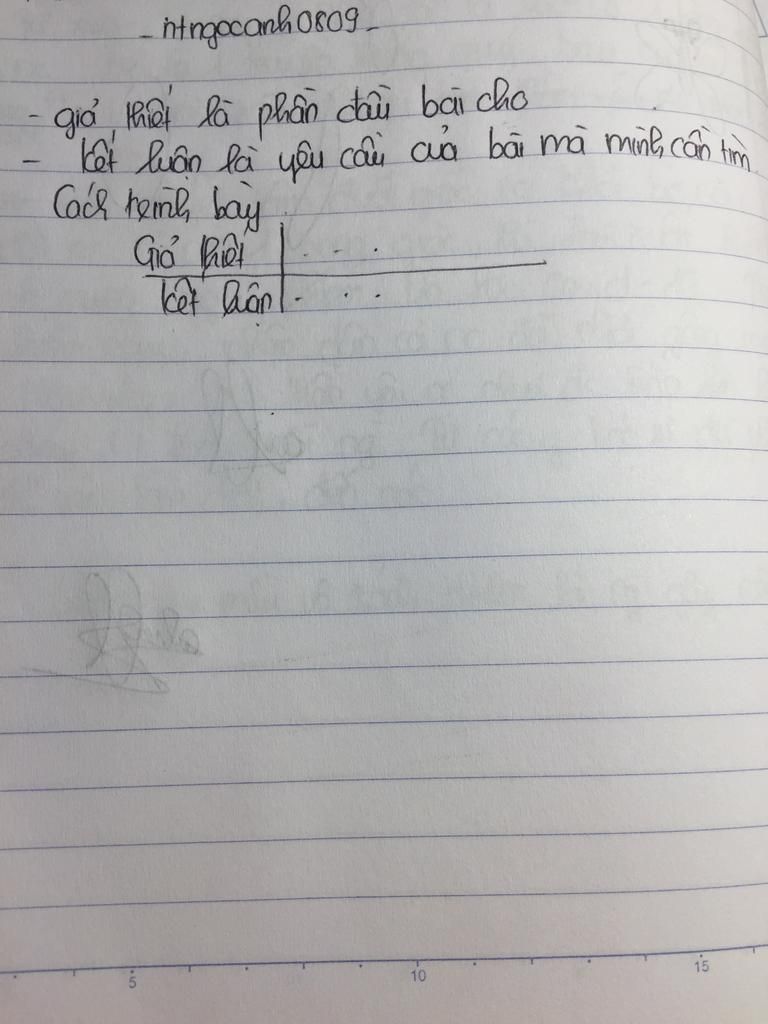 - ntngocanh0809 -
- giả thiết là phần đầu bài cho
- kết luận là yêu cầu của bài mà mình cần tìm
Cách trình bày
Giả thiết | . . .
Kết luận | . . .
5 10 15